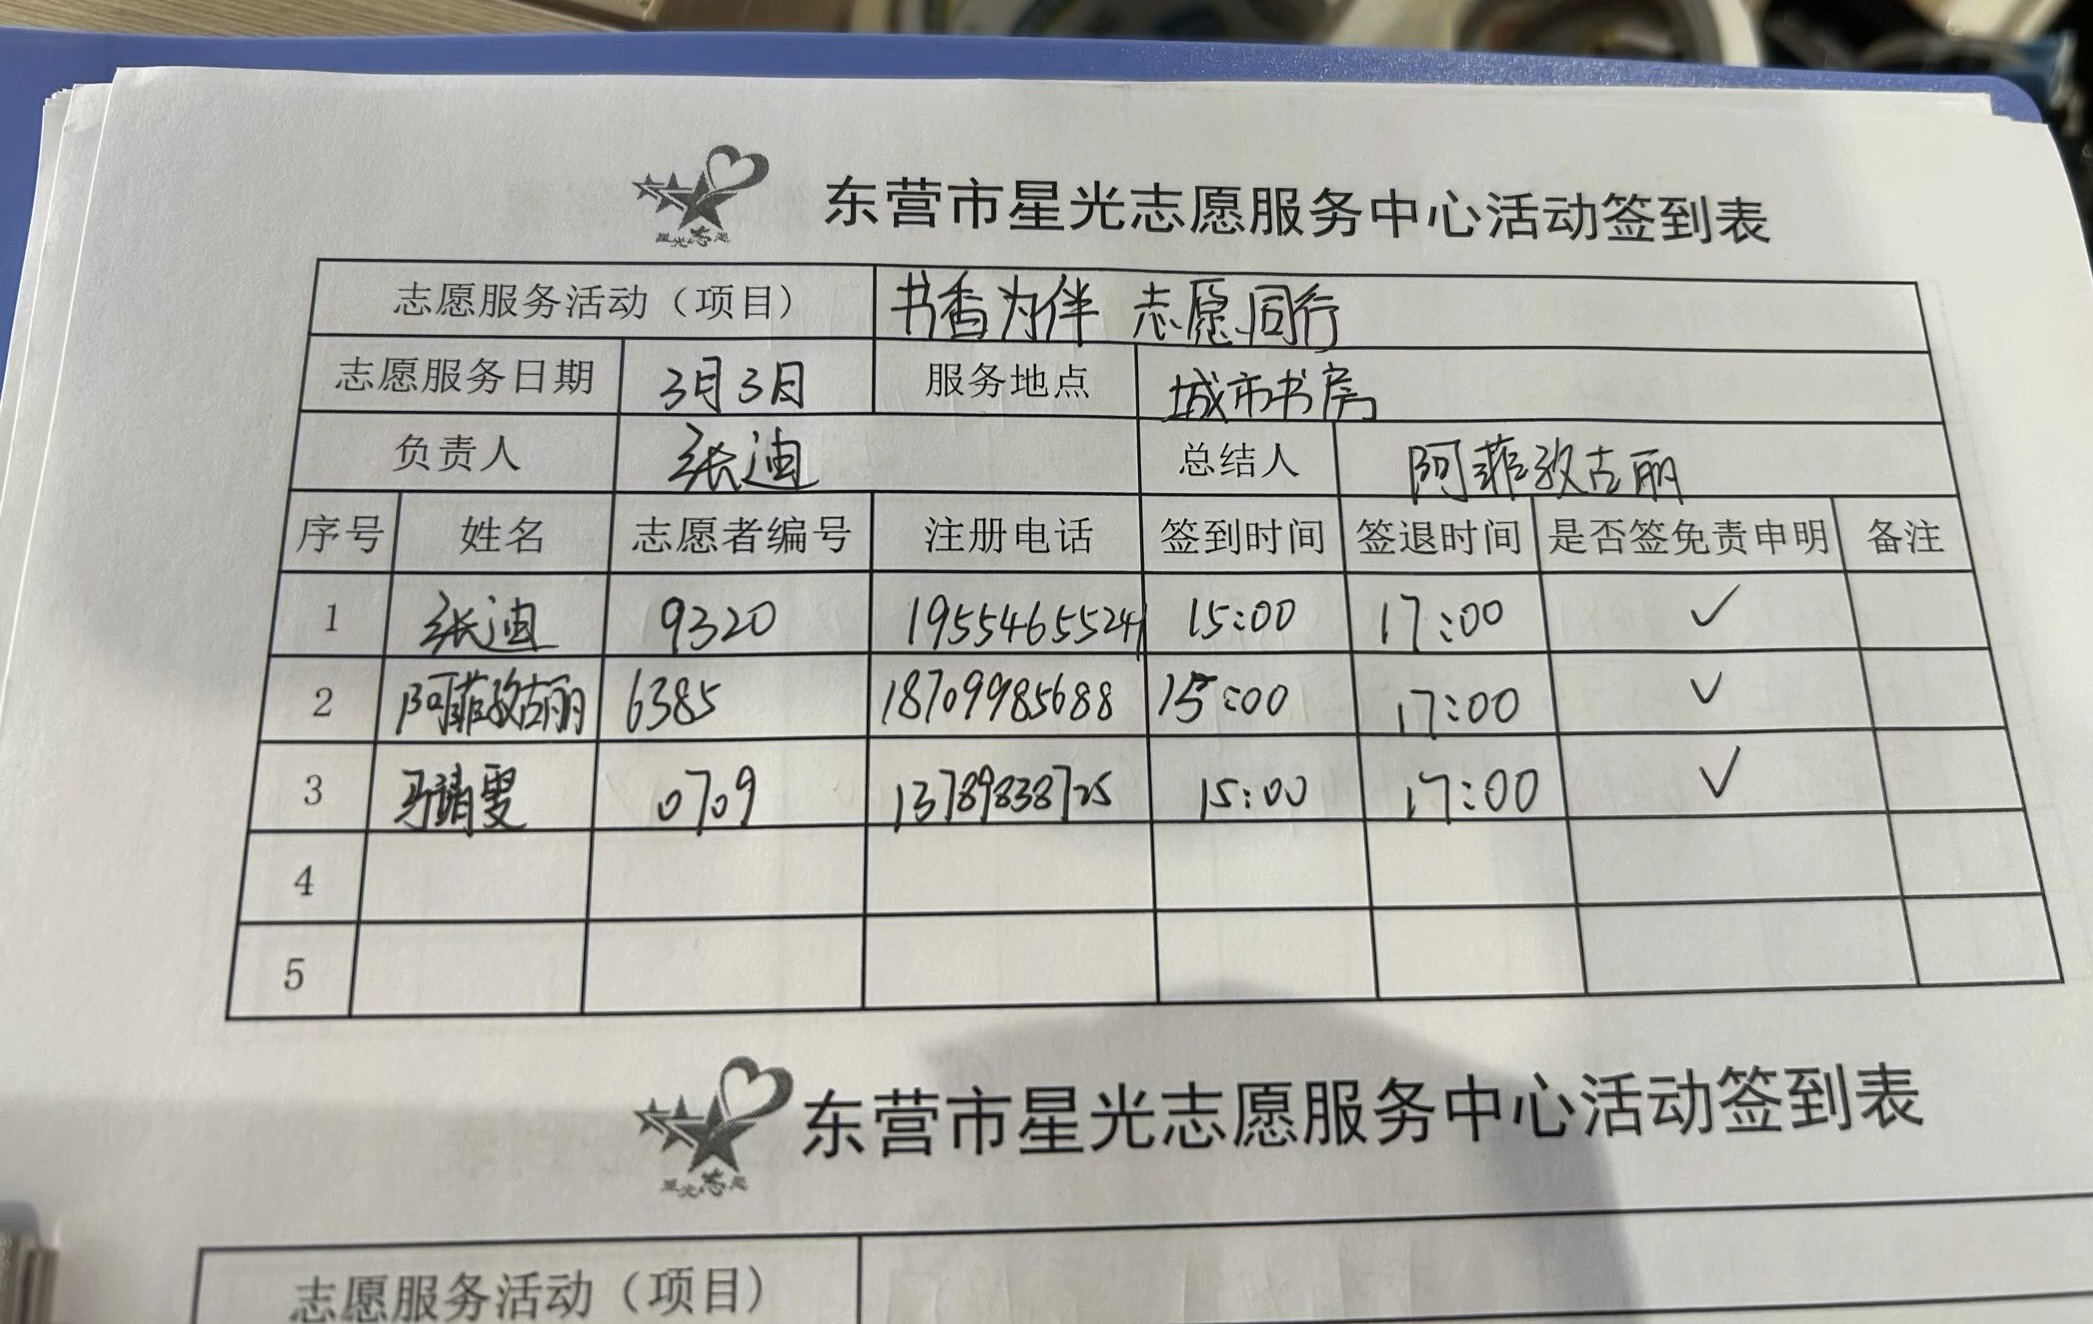 星光志愿
东营市星光志愿服务中心活动签到表
志愿服务活动（项目） 书香为伴 志愿同行
志愿服务日期 3月3日 服务地点 城市书房
负责人 张迪 总结人 阿菲孜古丽
序号 姓名 志愿者编号 注册电话 签到时间 签退时间 是否签免责申明 备注
1 张迪 9320 19554655241 15:00 17:00 ✓
2 阿菲孜古丽 6385 18709985688 15:00 17:00 ✓
3 马婧雯 0709 13789838725 15:00 17:00 ✓
4
5
星光志愿
东营市星光志愿服务中心活动签到表
志愿服务活动（项目）